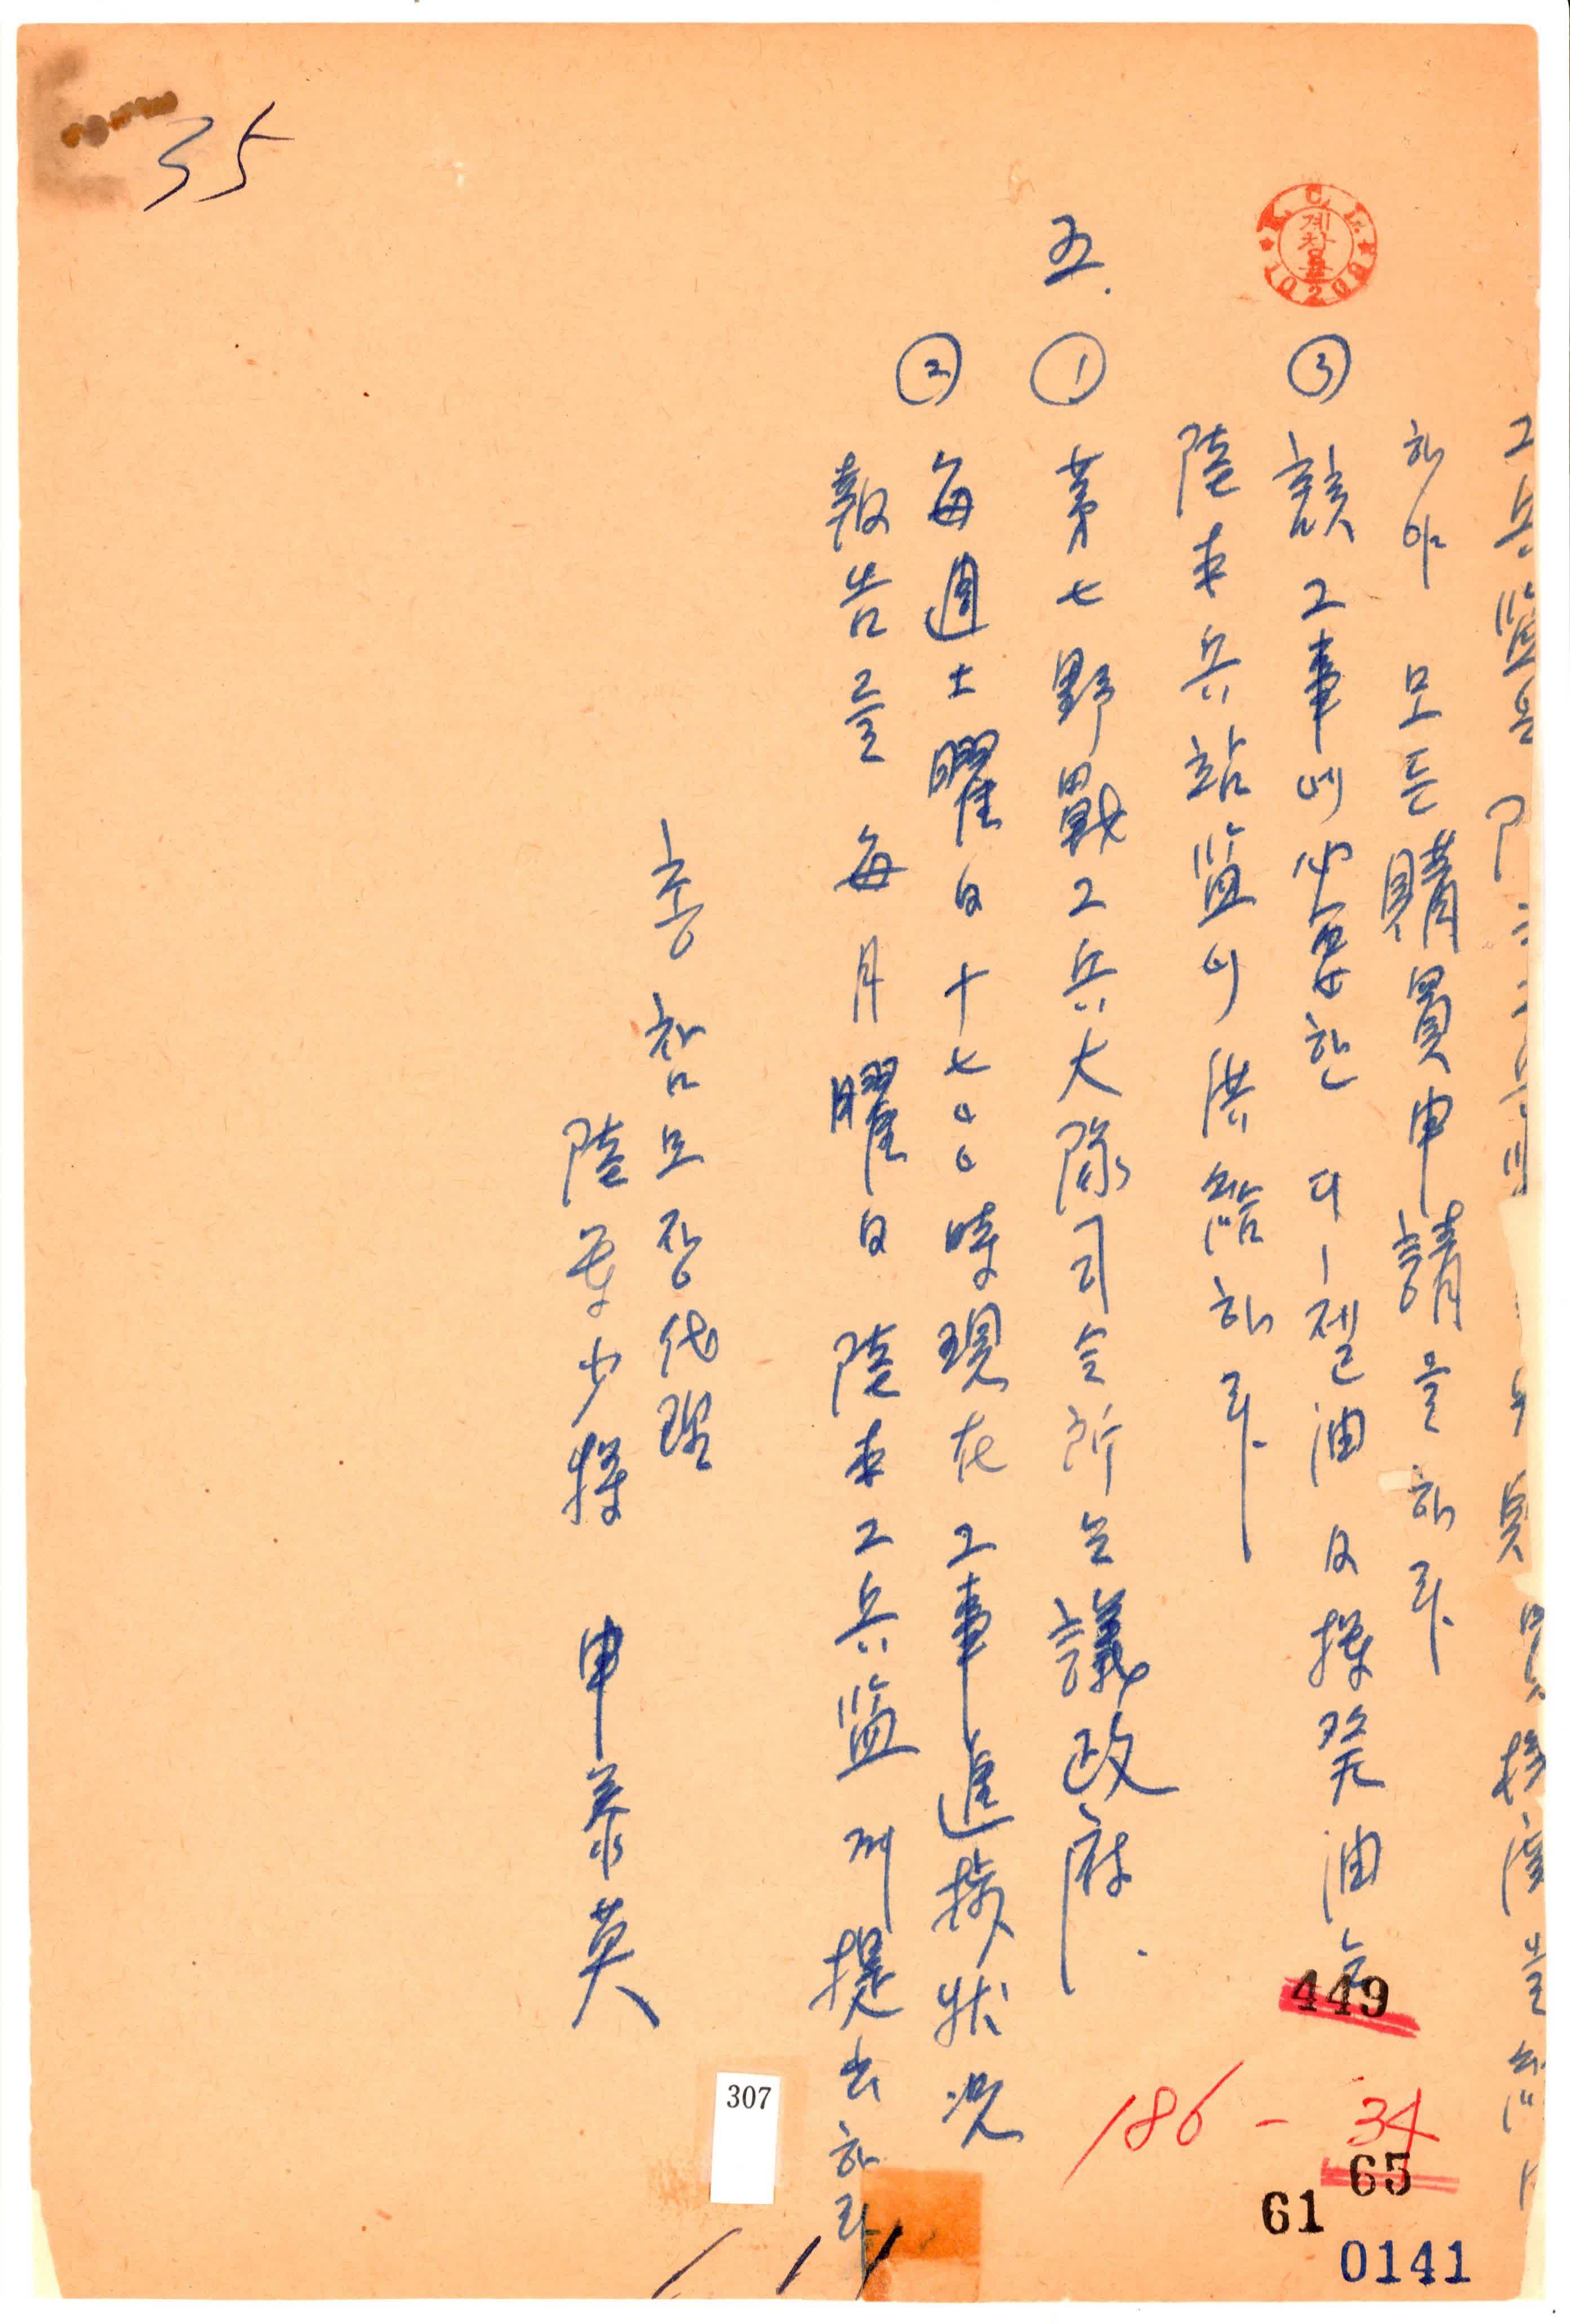 工兵監은
하야 모든 購買申請을 하라
③ 該工事에 必要한 디-젤油 及 揮発油는
陸本兵站監이 供給하라
五. ① 第七野戰工兵大隊司令所는 議政府.
② 每週土曜日十七00時現在 工事進捗狀況
報告를 每月曜日 陸本工兵監께 提出하라
총참모장代理
陸軍少將 申泰英
35
계창률
10200
449
186 - 34
65
61
0141
307